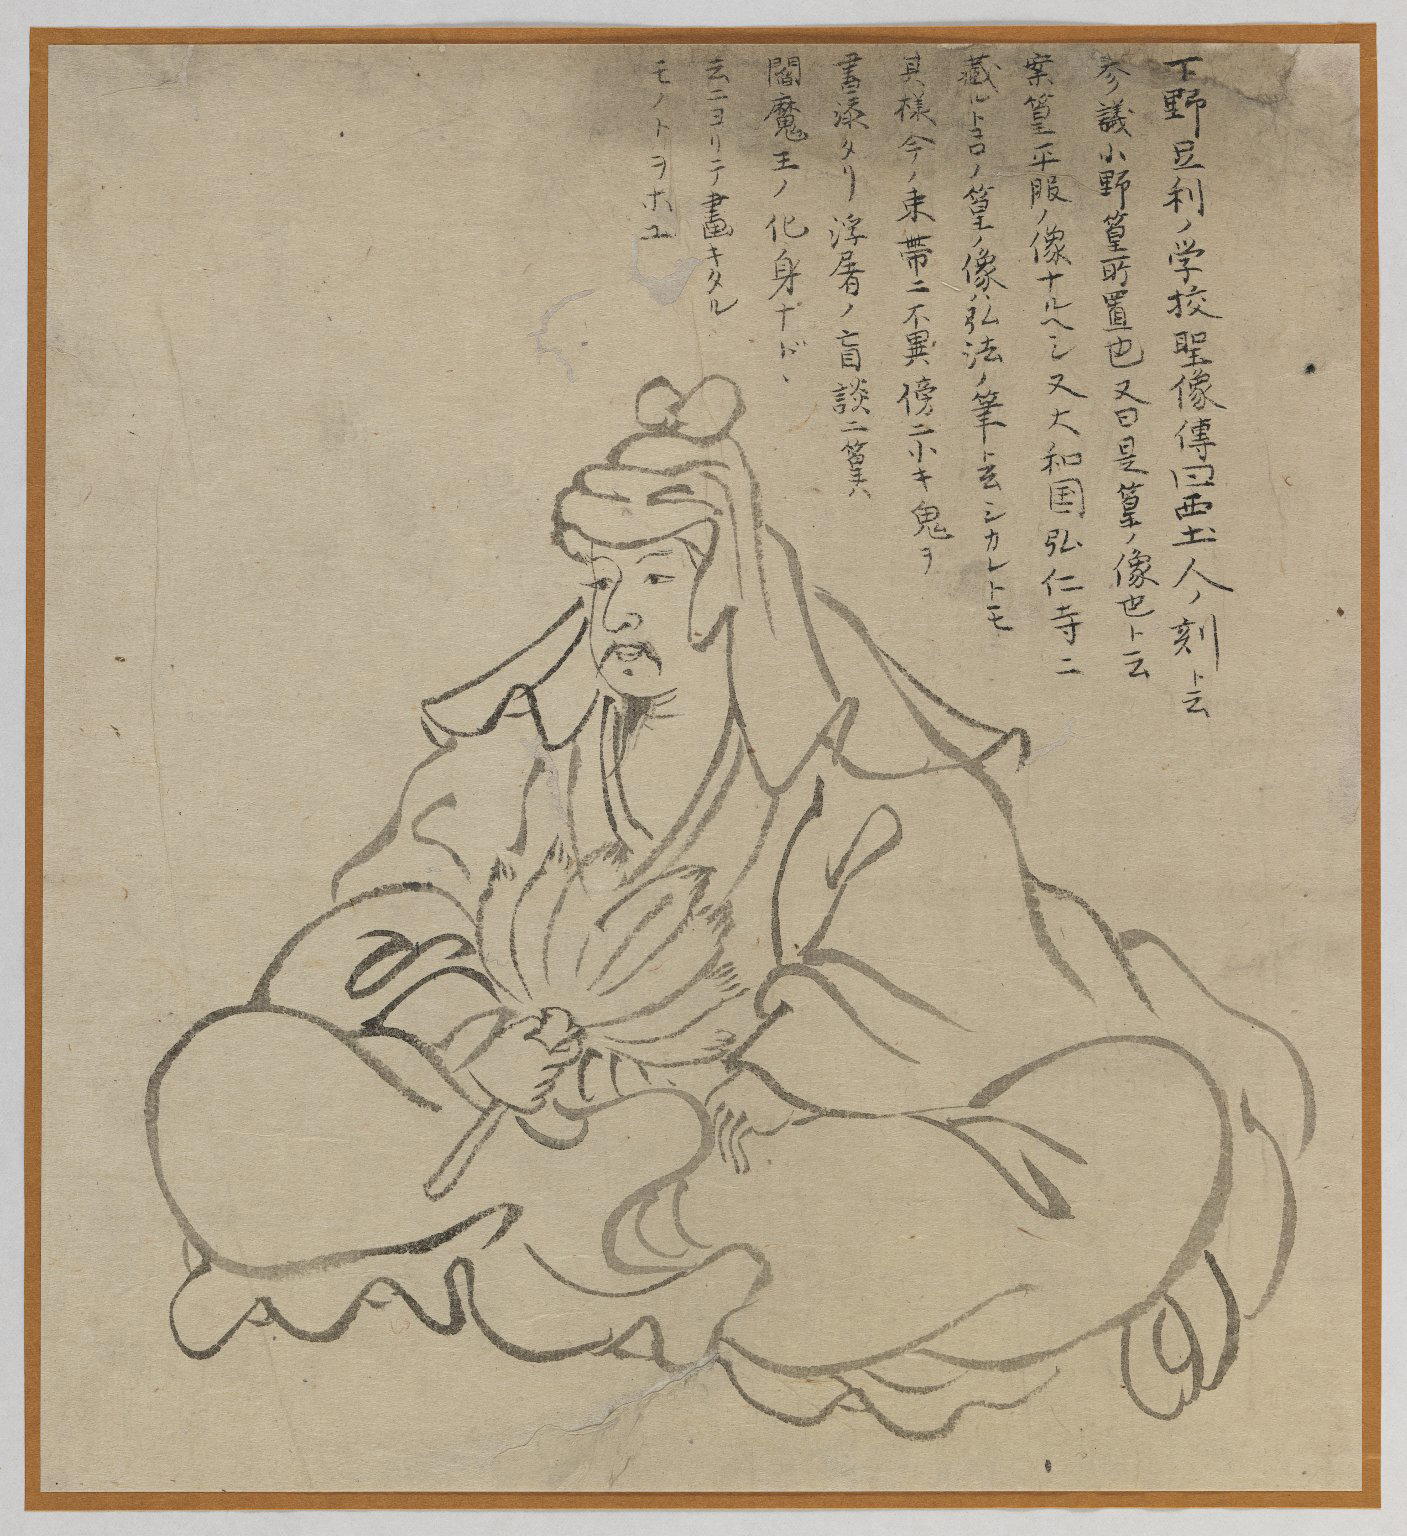 下野足利ノ学校聖像傳曰西土人ノ刻ト云
参議小野篁所置也又曰是篁ノ像也ト云
案篁平服ノ像ナルヘシ又大和国弘仁寺ニ
藏ルトコロノ篁ノ像ハ弘法ノ筆ト云シカレトモ
其様今ノ束帯ニ不異傍ニ小キ鬼ヲ
書添タリ浮屠ノ盲談ニ篁ハ
閻魔王ノ化身ナドヽ
云ニヨリテ畫キタル
モノトヲホユ